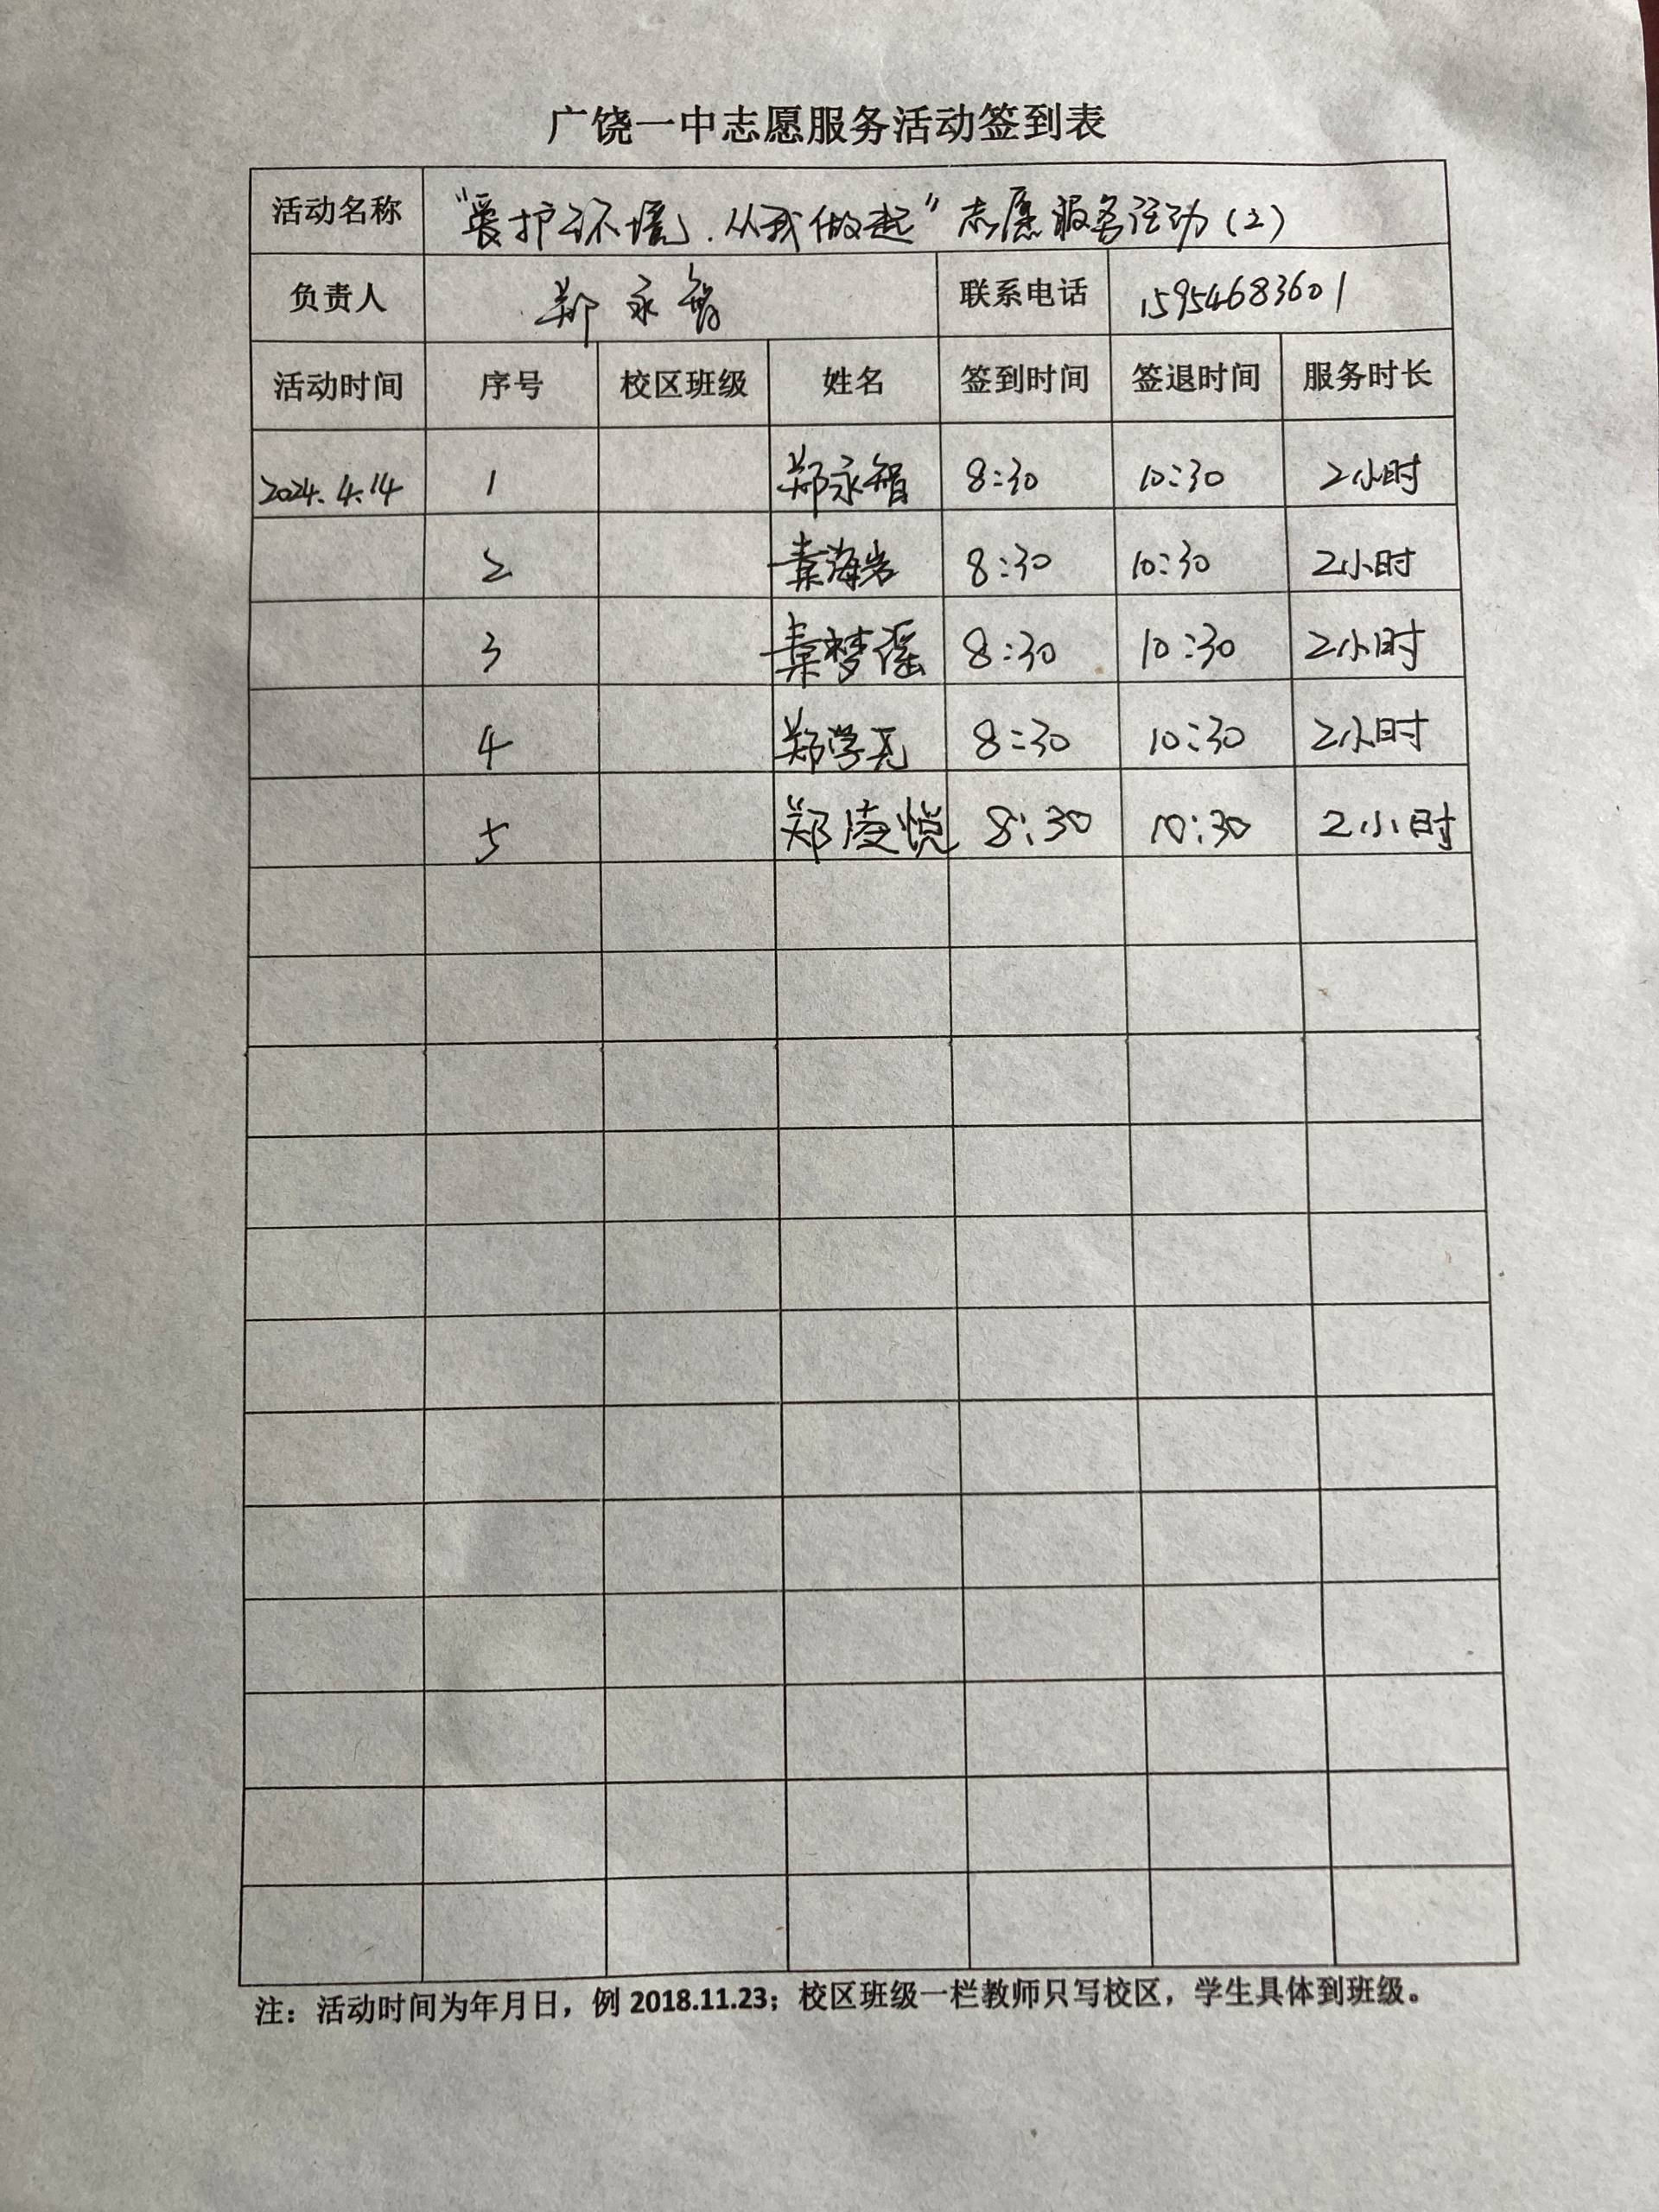 广饶一中志愿服务活动签到表
活动名称 "爱护环境,从我做起"志愿服务活动(2)
负责人 郑永智 联系电话 15954683601
活动时间 序号 校区班级 姓名 签到时间 签退时间 服务时长
2024.4.14 1 郑永智 8:30 10:30 2小时
2 8:30 10:30 2小时
3 8:30 10:30 2小时
4 郑学尧 8:30 10:30 2小时
5 郑凌悦 8:30 10:30 2小时
注：活动时间为年月日，例 2018.11.23；校区班级一栏教师只写校区，学生具体到班级。